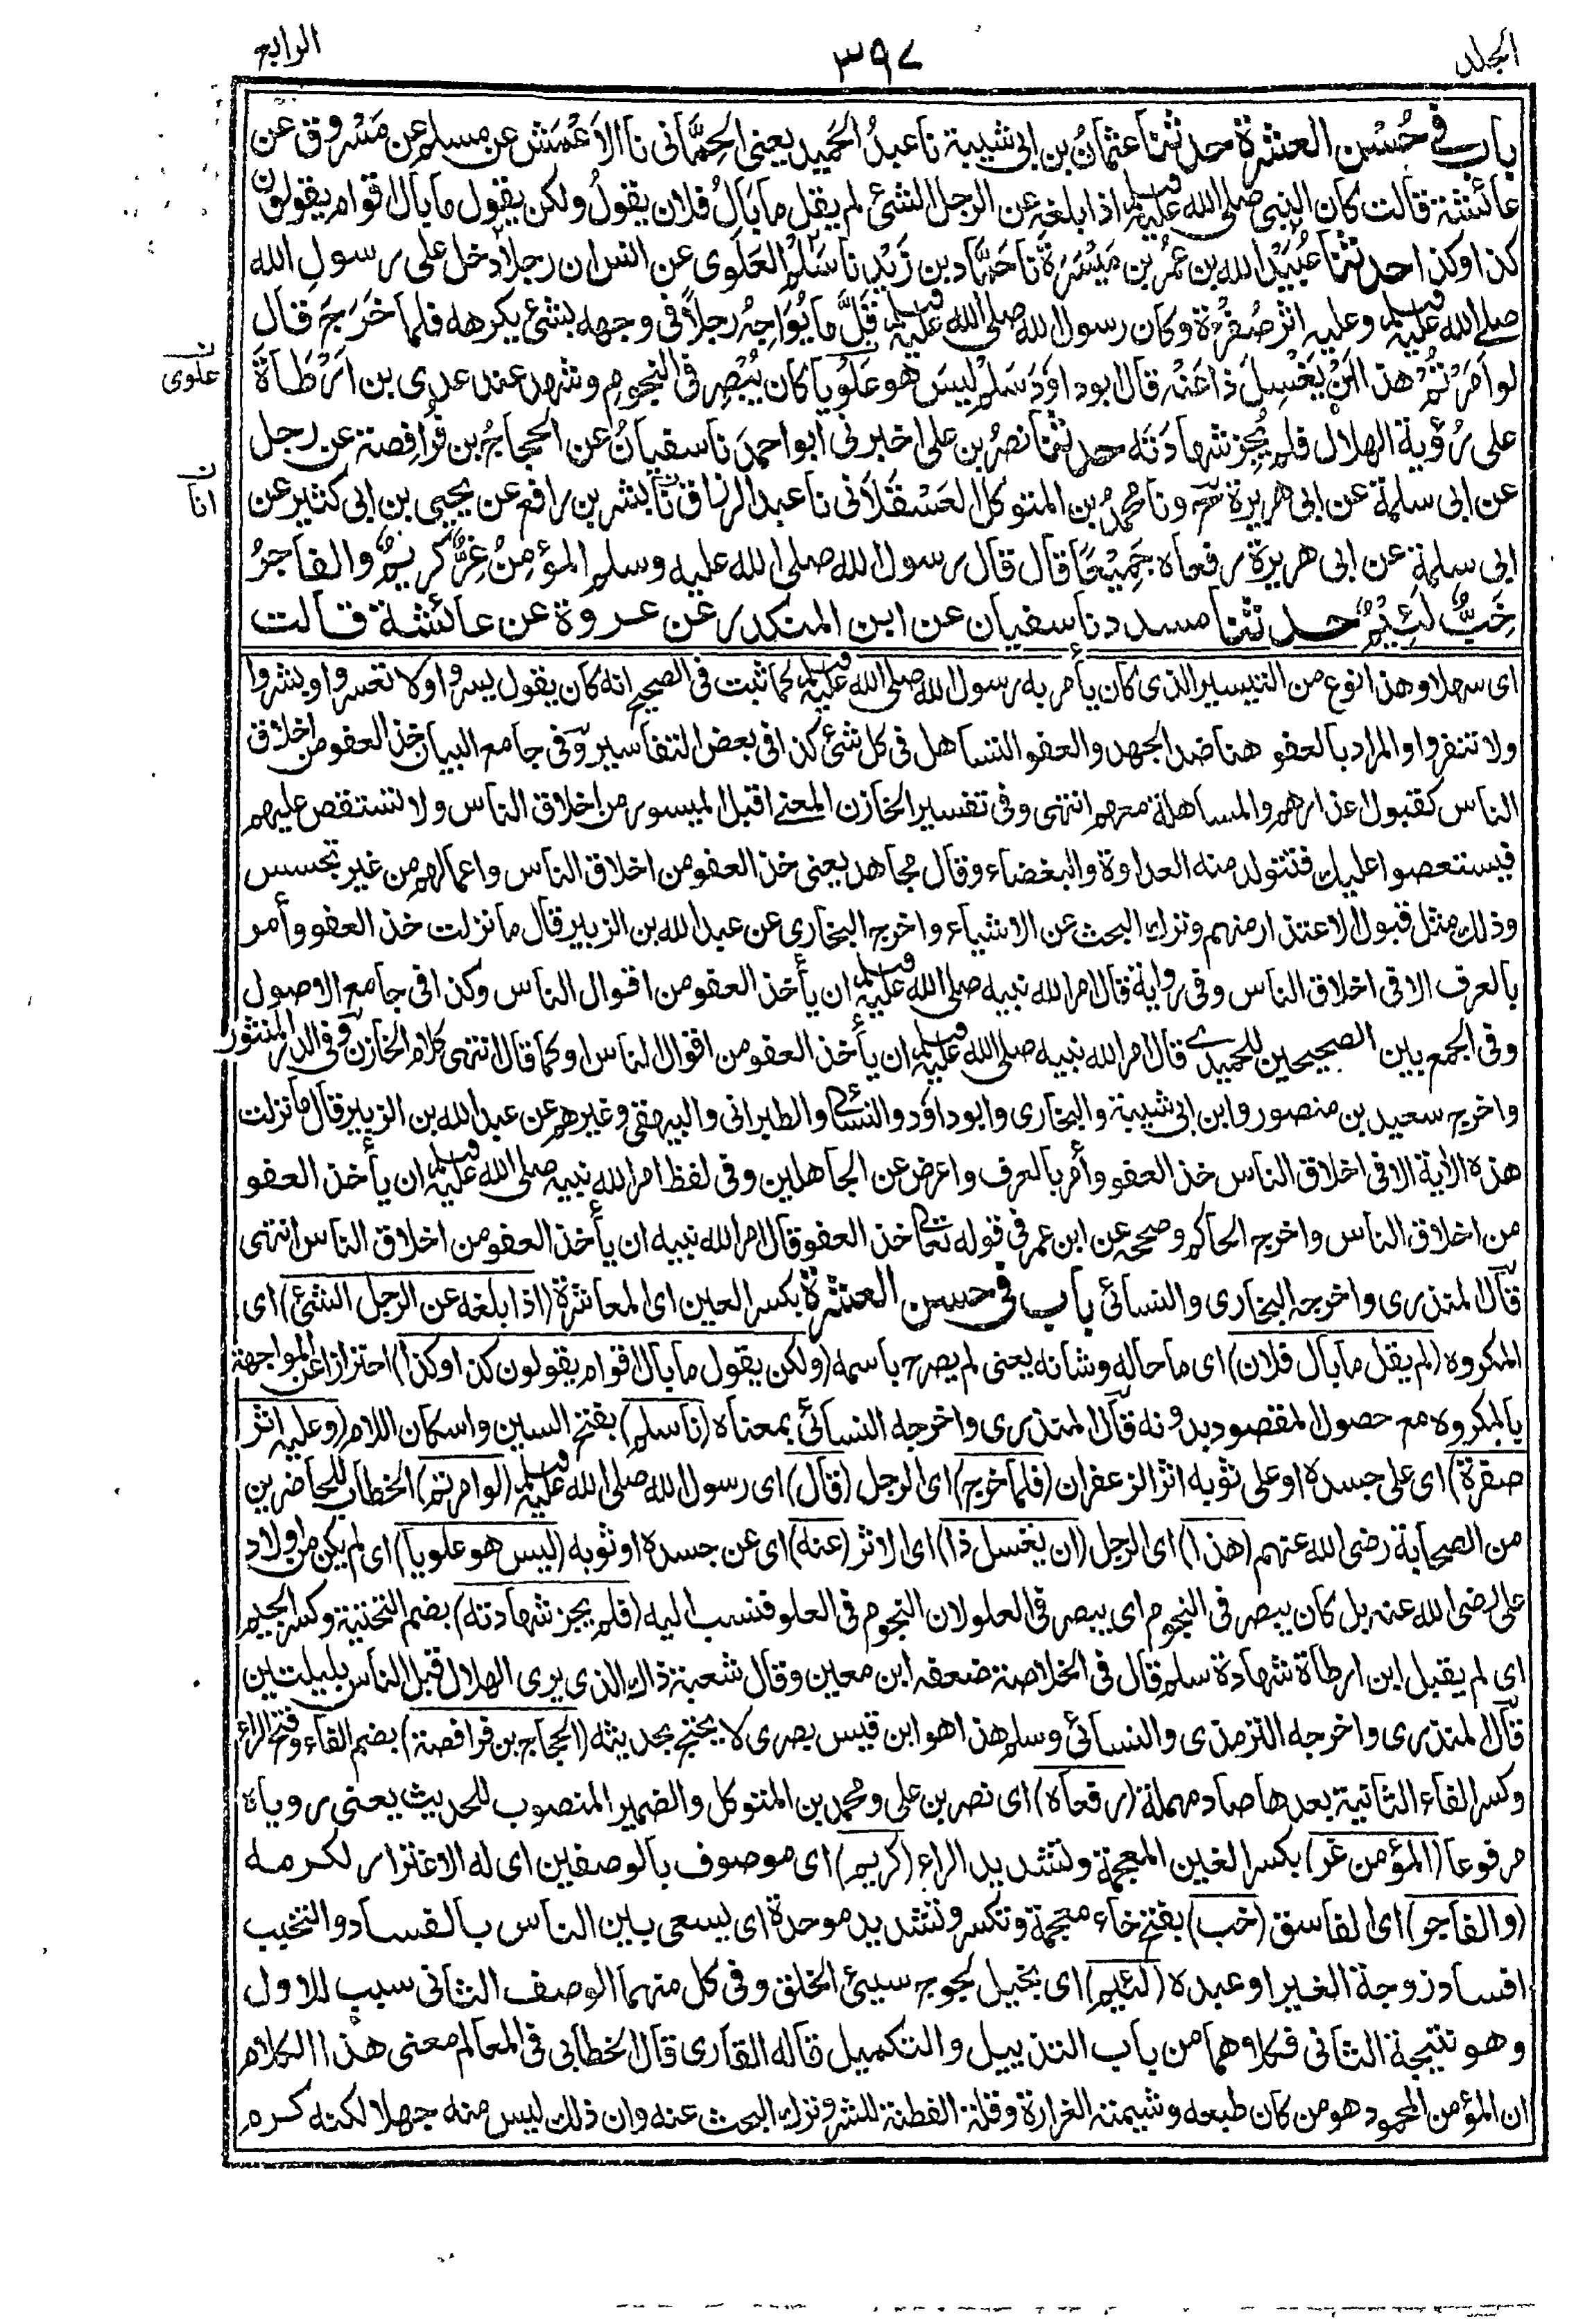 المجلد ٣٩٧ الرابع
باب في حُسْن العشرة حدثنا عثمانُ بن ابى شيبة نا عبدُ الحَميد يعنى الحِمَّانى نا الاَعْمَش عن مسلم عن مَسْروق عن
عائشة قالت كان النبى صلى الله عليه وسلم اذا بلغه عن الرجل الشئ لم يقل ما بَالُ فلان يقولُ ولكن يقول ما بال اقوام يقولون
كذا وكذا حدثنا عُبَيْد الله بن عُمَر بن مَيْسَرَةَ نا حَمَّاد بن زَيْد نا سَلْمُ العَلَوى عن انس ان رجلا دخل على رسول الله
صلے الله عليه وسلم وعليه اثر صُفْرَة وكان رسول الله صلى الله عليه وسلم قَلَّ ما يُوَاجِهُ رجلاً فى وجهه بشئ يكرهه فلما خَرَجَ قال
لو اَمَرْتُمْ هذا اَنْ يَغْسِلَ ذا عَنْهُ قال ابو داوٗدَ سَلْم لَيسَ هو عَلَوِيا كان يُبْصِر فى النجوم وشهد عند عدى بن اَرْطَاَةَ
علوى
على رُؤْية الهلال فلم يُجِز شهادَتَه حدثنا نصرُ بن على اخبرنى ابو احمدَ نا سفيانُ عن الحجاج بن فُرَافِصة عن رجل
عن ابى سلمة عن ابى هريرة ح ونا محمدُ بن المتوكل العَسْقَلَانى نا عبد الرزاق نا بشر بن رافع عن يحيى بن ابى كثير عن
انا
ابى سلمة عن ابى هريرة رفعاه جَمِيْعًا قال قال رسول الله صلى الله عليه وسلم المؤمِنُ غِرٌّ كريمٌ والفاجرُ
خَبٌّ لَئِيْمٌ حدثنا مسدد نا سفيان عن ابن المنكدر عن عروة عن عائشة قالت
اى سهلا وهذا نوع من التيسير الذى كان يأمر به رسول الله صلى الله عليه وسلم كما ثبت فى الصحيح انه كان يقول يسروا ولا تعسروا وبشروا
ولا تنفروا والمراد بالعفو هنا ضد الجهد والعفو التساهل فى كل شئ كذا فى بعض التفاسير وفى جامع البيان خذ العفو من اخلاق
الناس كقبول اعذارهم والمساهلة معهم انتهى وفى تفسير الخازن المعنى اقبل الميسور من اخلاق الناس ولا تستقص عليهم
فيستعصوا عليك فتتولد منه العداوة والبغضاء وقال مجاهد يعنى خذ العفو من اخلاق الناس واعمالهم من غير تجسس
وذلك مثل قبول الاعتذار منهم وترك البحث عن الاشياء واخرج البخارى عن عبد الله بن الزبير قال ما نزلت خذ العفو وأمر
بالعرف الا فى اخلاق الناس وفى رواية قال امر الله نبيه صلى الله عليه وسلم ان يأخذ العفو من اقوال الناس وكذا فى جامع الاصول
وفى الجمع بين الصحيحين للحميدى قال امر الله نبيه صلى الله عليه وسلم ان يأخذ العفو من اقوال الناس او كما قال انتهى كلام الخازن وفى الدر المنثور
واخرج سعيد بن منصور وابن ابى شيبة والبخارى وابو داوٗد والنسائى والطبرانى والبيهقى وغيرهم عن عبد الله بن الزبير قال ما نزلت
هذه الاٰية الا فى اخلاق الناس خذ العفو وأمر بالعرف واعرض عن الجاهلين وفى لفظ امر الله نبيه صلى الله عليه وسلم ان يأخذ العفو
من اخلاق الناس واخرج الحاكم وصححه عن ابن عمر فى قوله تعالى خذ العفو قال امر الله نبيه ان يأخذ العفو من اخلاق الناس انتهى
قال المنذرى واخرجه البخارى والنسائى باب فى حسن العشرة بكسر العين اى المعاشرة (اذا بلغه عن الرجل الشئ) اى
المكروه (لم يقل ما بال فلان) اى ما حاله وشانه يعنى لم يصرح باسمه (ولكن يقول ما بال اقوام يقولون كذا وكذا) احترازا عن المواجهة
بالمكروه مع حصول المقصود بدونه قال المنذرى واخرجه النسائى بمعناه (نا سلم) بفتح السين واسكان اللام (وعليه اثر
صفرة) اى على جسده او على ثوبه اثر الزعفران (فلما خرج) اى الرجل (قال) اى رسول الله صلى الله عليه وسلم (لو امرتم) الخطاب للحاضرين
من الصحابة رضى الله عنهم (هذا) اى الرجل (ان يغسل ذا) اى الاثر (عنه) اى عن جسده او ثوبه (ليس هو علويا) اى لم يكن من اولاد
على رضى الله عنه بل كان يبصر فى النجوم اى يبصر فى العلو لان النجوم فى العلو فنسب اليه (فلم يجز شهادته) بضم التحتية وكسر الجيم
اى لم يقبل ابن ارطاة شهادة سلم قال فى الخلاصة ضعفه ابن معين وقال شعبة ذاك الذى يرى الهلال قبل الناس بليلتين
قال المنذرى واخرجه الترمذى والنسائى وسلم هذا هو ابن قيس بصرى لا يحتج بحديثه (الحجاج بن فرافصة) بضم الفاء وفتح الراء
وكسر الفاء الثانية بعدها صاد مهملة (رفعاه) اى نصر بن على ومحمد بن المتوكل والضمير المنصوب للحديث يعنى روياه
مرفوعا (المؤمن غر) بكسر الغين المعجمة وتشديد الراء (كريم) اى موصوف بالوصفين اى له الاغترار لكرمه
(والفاجر) اى الفاسق (خب) بفتح خاء معجمة وتكسر وتشديد موحدة اى يسعى بين الناس بالفساد والتخبيب
افساد زوجة الغير او عبده (لئيم) اى بخيل لجوج سيئ الخلق وفى كل منهما الوصف الثانى سبب للاول
وهو نتيجة الثانى فكلاهما من باب التذييل والتكميل قاله القارى قال الخطابى فى المعالم معنى هذا الكلام
ان المؤمن المحمود هو من كان طبعه وشيمته الغرارة وقلة الفطنة للشر وترك البحث عنه وان ذلك ليس منه جهلا لكنه كرم